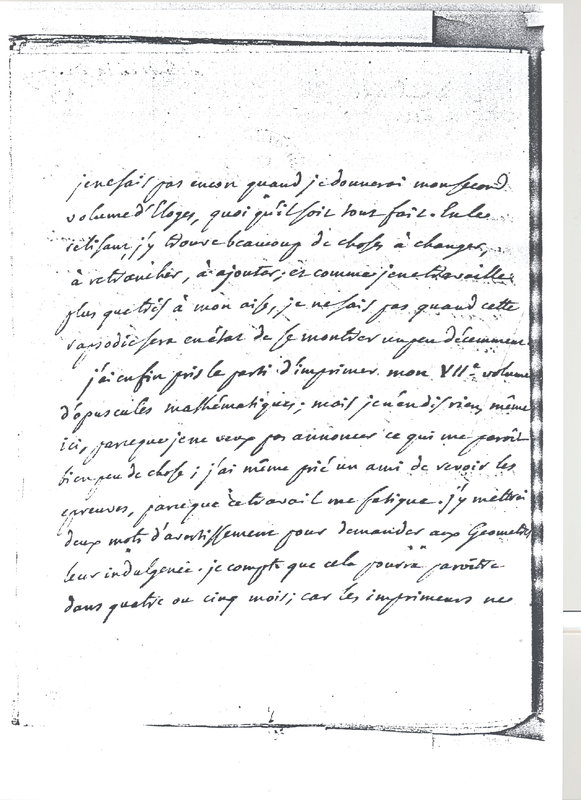 je ne sais pas encore quand je donnerai mon second
volume d'Eloges, quoi qu'il soit tout fait. En les
relisant, j'y trouve beaucoup de choses à changer,
à retrancher, à ajouter; et comme je ne travaille
plus que très à mon aise, je ne sais pas quand cette
rapsodie sera en état de se montrer un peu décemment.
j'ai enfin pris le parti d'imprimer mon VIIe. volume
d'opuscules mathématiques; mais je n'en dis rien, même
ici, parceque je ne veux pas annoncer ce qui me paroît
bien peu de chose; j'ai même prié un ami de revoir les
epreuves, parceque ce travail me fatigue. j'y mettrai
deux mots d'avertissement pour demander aux Geometres
leur indulgence. je compte que cela pourra paroître
dans quatre ou cinq mois; car les imprimeurs ne